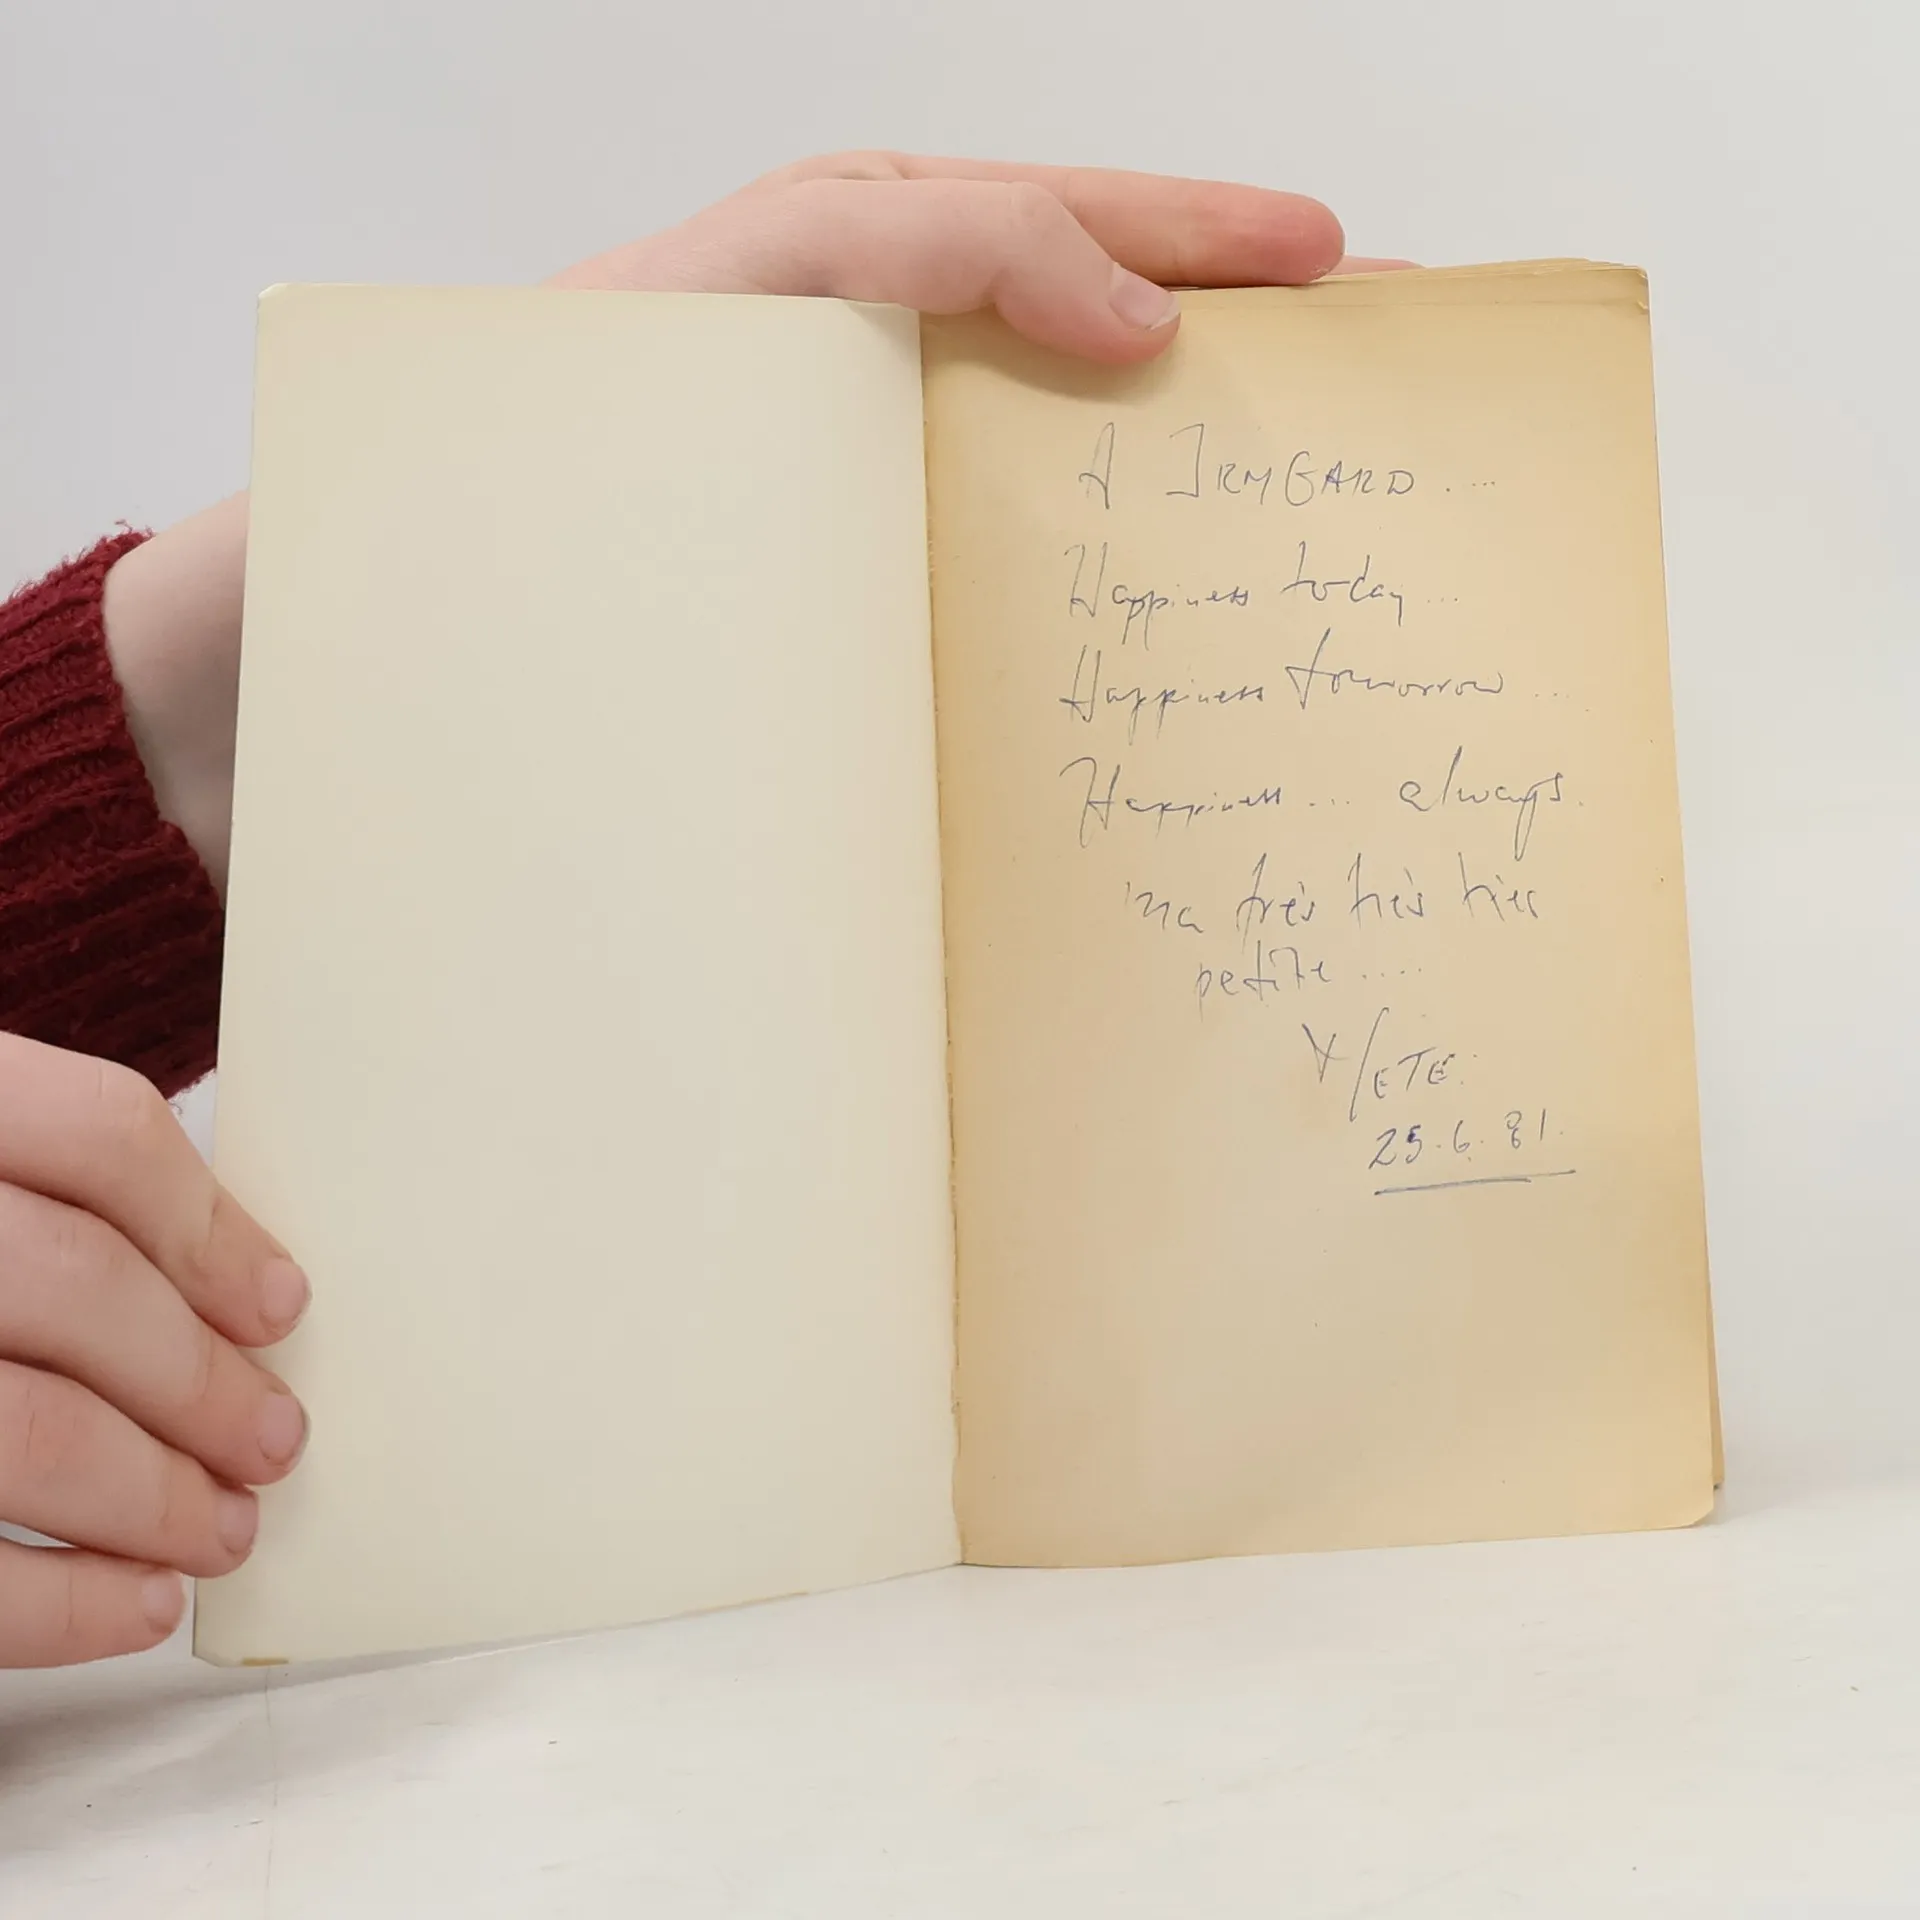 A IRMGARD....
Happiness today...
Happiness tomorrow...
Happiness... always.
Ma très très très
petite.....
Y/ETE.
25.6.81.